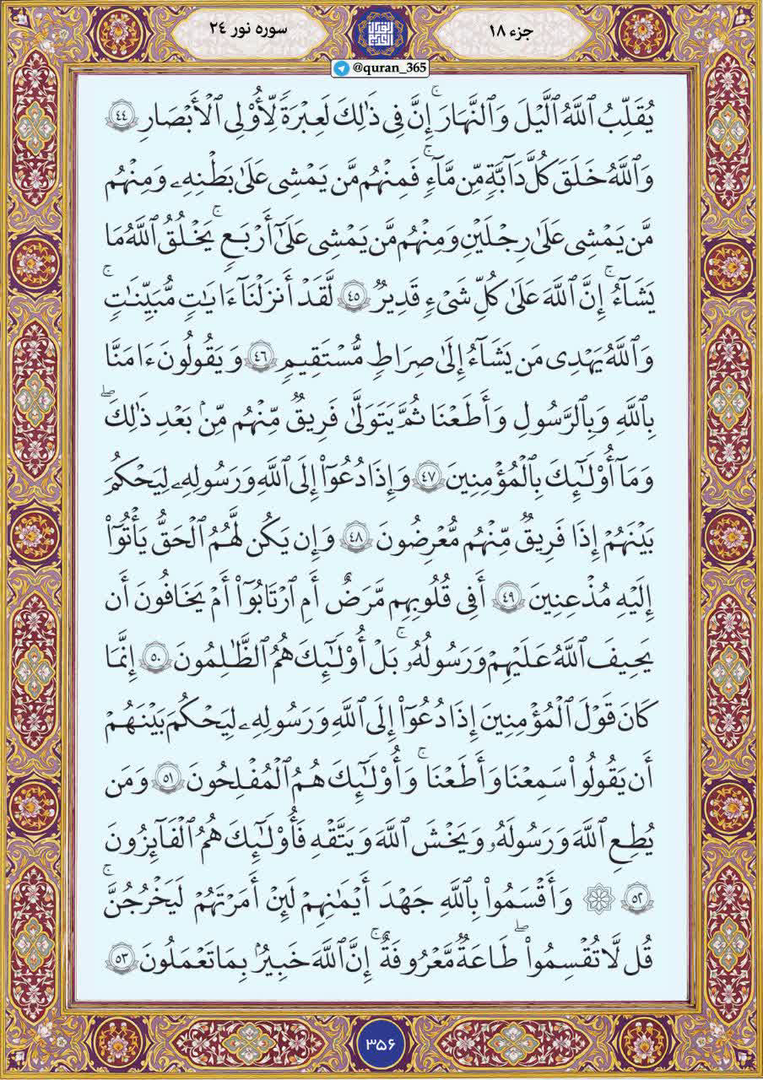 جزء ۱۸
سوره نور ۲۴
@quran_365
يُقَلِّبُ ٱللَّهُ ٱلَّيْلَ وَٱلنَّهَارَ ۚ إِنَّ فِى ذَٰلِكَ لَعِبْرَةً لِّأُو۟لِى ٱلْأَبْصَـٰرِ ٤٤
وَٱللَّهُ خَلَقَ كُلَّ دَآبَّةٍ مِّن مَّآءٍ ۖ فَمِنْهُم مَّن يَمْشِى عَلَىٰ بَطْنِهِۦ وَمِنْهُم
مَّن يَمْشِى عَلَىٰ رِجْلَيْنِ وَمِنْهُم مَّن يَمْشِى عَلَىٰٓ أَرْبَعٍ ۚ يَخْلُقُ ٱللَّهُ مَا
يَشَآءُ ۚ إِنَّ ٱللَّهَ عَلَىٰ كُلِّ شَىْءٍ قَدِيرٌ ٤٥ لَّقَدْ أَنزَلْنَآ ءَايَـٰتٍ مُّبَيِّنَـٰتٍ ۚ
وَٱللَّهُ يَهْدِى مَن يَشَآءُ إِلَىٰ صِرَٰطٍ مُّسْتَقِيمٍ ٤٦ وَيَقُولُونَ ءَامَنَّا
بِٱللَّهِ وَبِٱلرَّسُولِ وَأَطَعْنَا ثُمَّ يَتَوَلَّىٰ فَرِيقٌ مِّنْهُم مِّنۢ بَعْدِ ذَٰلِكَ ۚ
وَمَآ أُو۟لَـٰٓئِكَ بِٱلْمُؤْمِنِينَ ٤٧ وَإِذَا دُعُوٓا۟ إِلَى ٱللَّهِ وَرَسُولِهِۦ لِيَحْكُمَ
بَيْنَهُمْ إِذَا فَرِيقٌ مِّنْهُم مُّعْرِضُونَ ٤٨ وَإِن يَكُن لَّهُمُ ٱلْحَقُّ يَأْتُوٓا۟
إِلَيْهِ مُذْعِنِينَ ٤٩ أَفِى قُلُوبِهِم مَّرَضٌ أَمِ ٱرْتَابُوٓا۟ أَمْ يَخَافُونَ أَن
يَحِيفَ ٱللَّهُ عَلَيْهِمْ وَرَسُولُهُۥ ۚ بَلْ أُو۟لَـٰٓئِكَ هُمُ ٱلظَّـٰلِمُونَ ٥٠ إِنَّمَا
كَانَ قَوْلَ ٱلْمُؤْمِنِينَ إِذَا دُعُوٓا۟ إِلَى ٱللَّهِ وَرَسُولِهِۦ لِيَحْكُمَ بَيْنَهُمْ
أَن يَقُولُوا۟ سَمِعْنَا وَأَطَعْنَا ۚ وَأُو۟لَـٰٓئِكَ هُمُ ٱلْمُفْلِحُونَ ٥١ وَمَن
يُطِعِ ٱللَّهَ وَرَسُولَهُۥ وَيَخْشَ ٱللَّهَ وَيَتَّقْهِ فَأُو۟لَـٰٓئِكَ هُمُ ٱلْفَآئِزُونَ
٥٢ ۞ وَأَقْسَمُوا۟ بِٱللَّهِ جَهْدَ أَيْمَـٰنِهِمْ لَئِنْ أَمَرْتَهُمْ لَيَخْرُجُنَّ ۚ
قُل لَّا تُقْسِمُوا۟ ۖ طَاعَةٌ مَّعْرُوفَةٌ ۚ إِنَّ ٱللَّهَ خَبِيرٌۢ بِمَا تَعْمَلُونَ ٥٣
۳۵۶